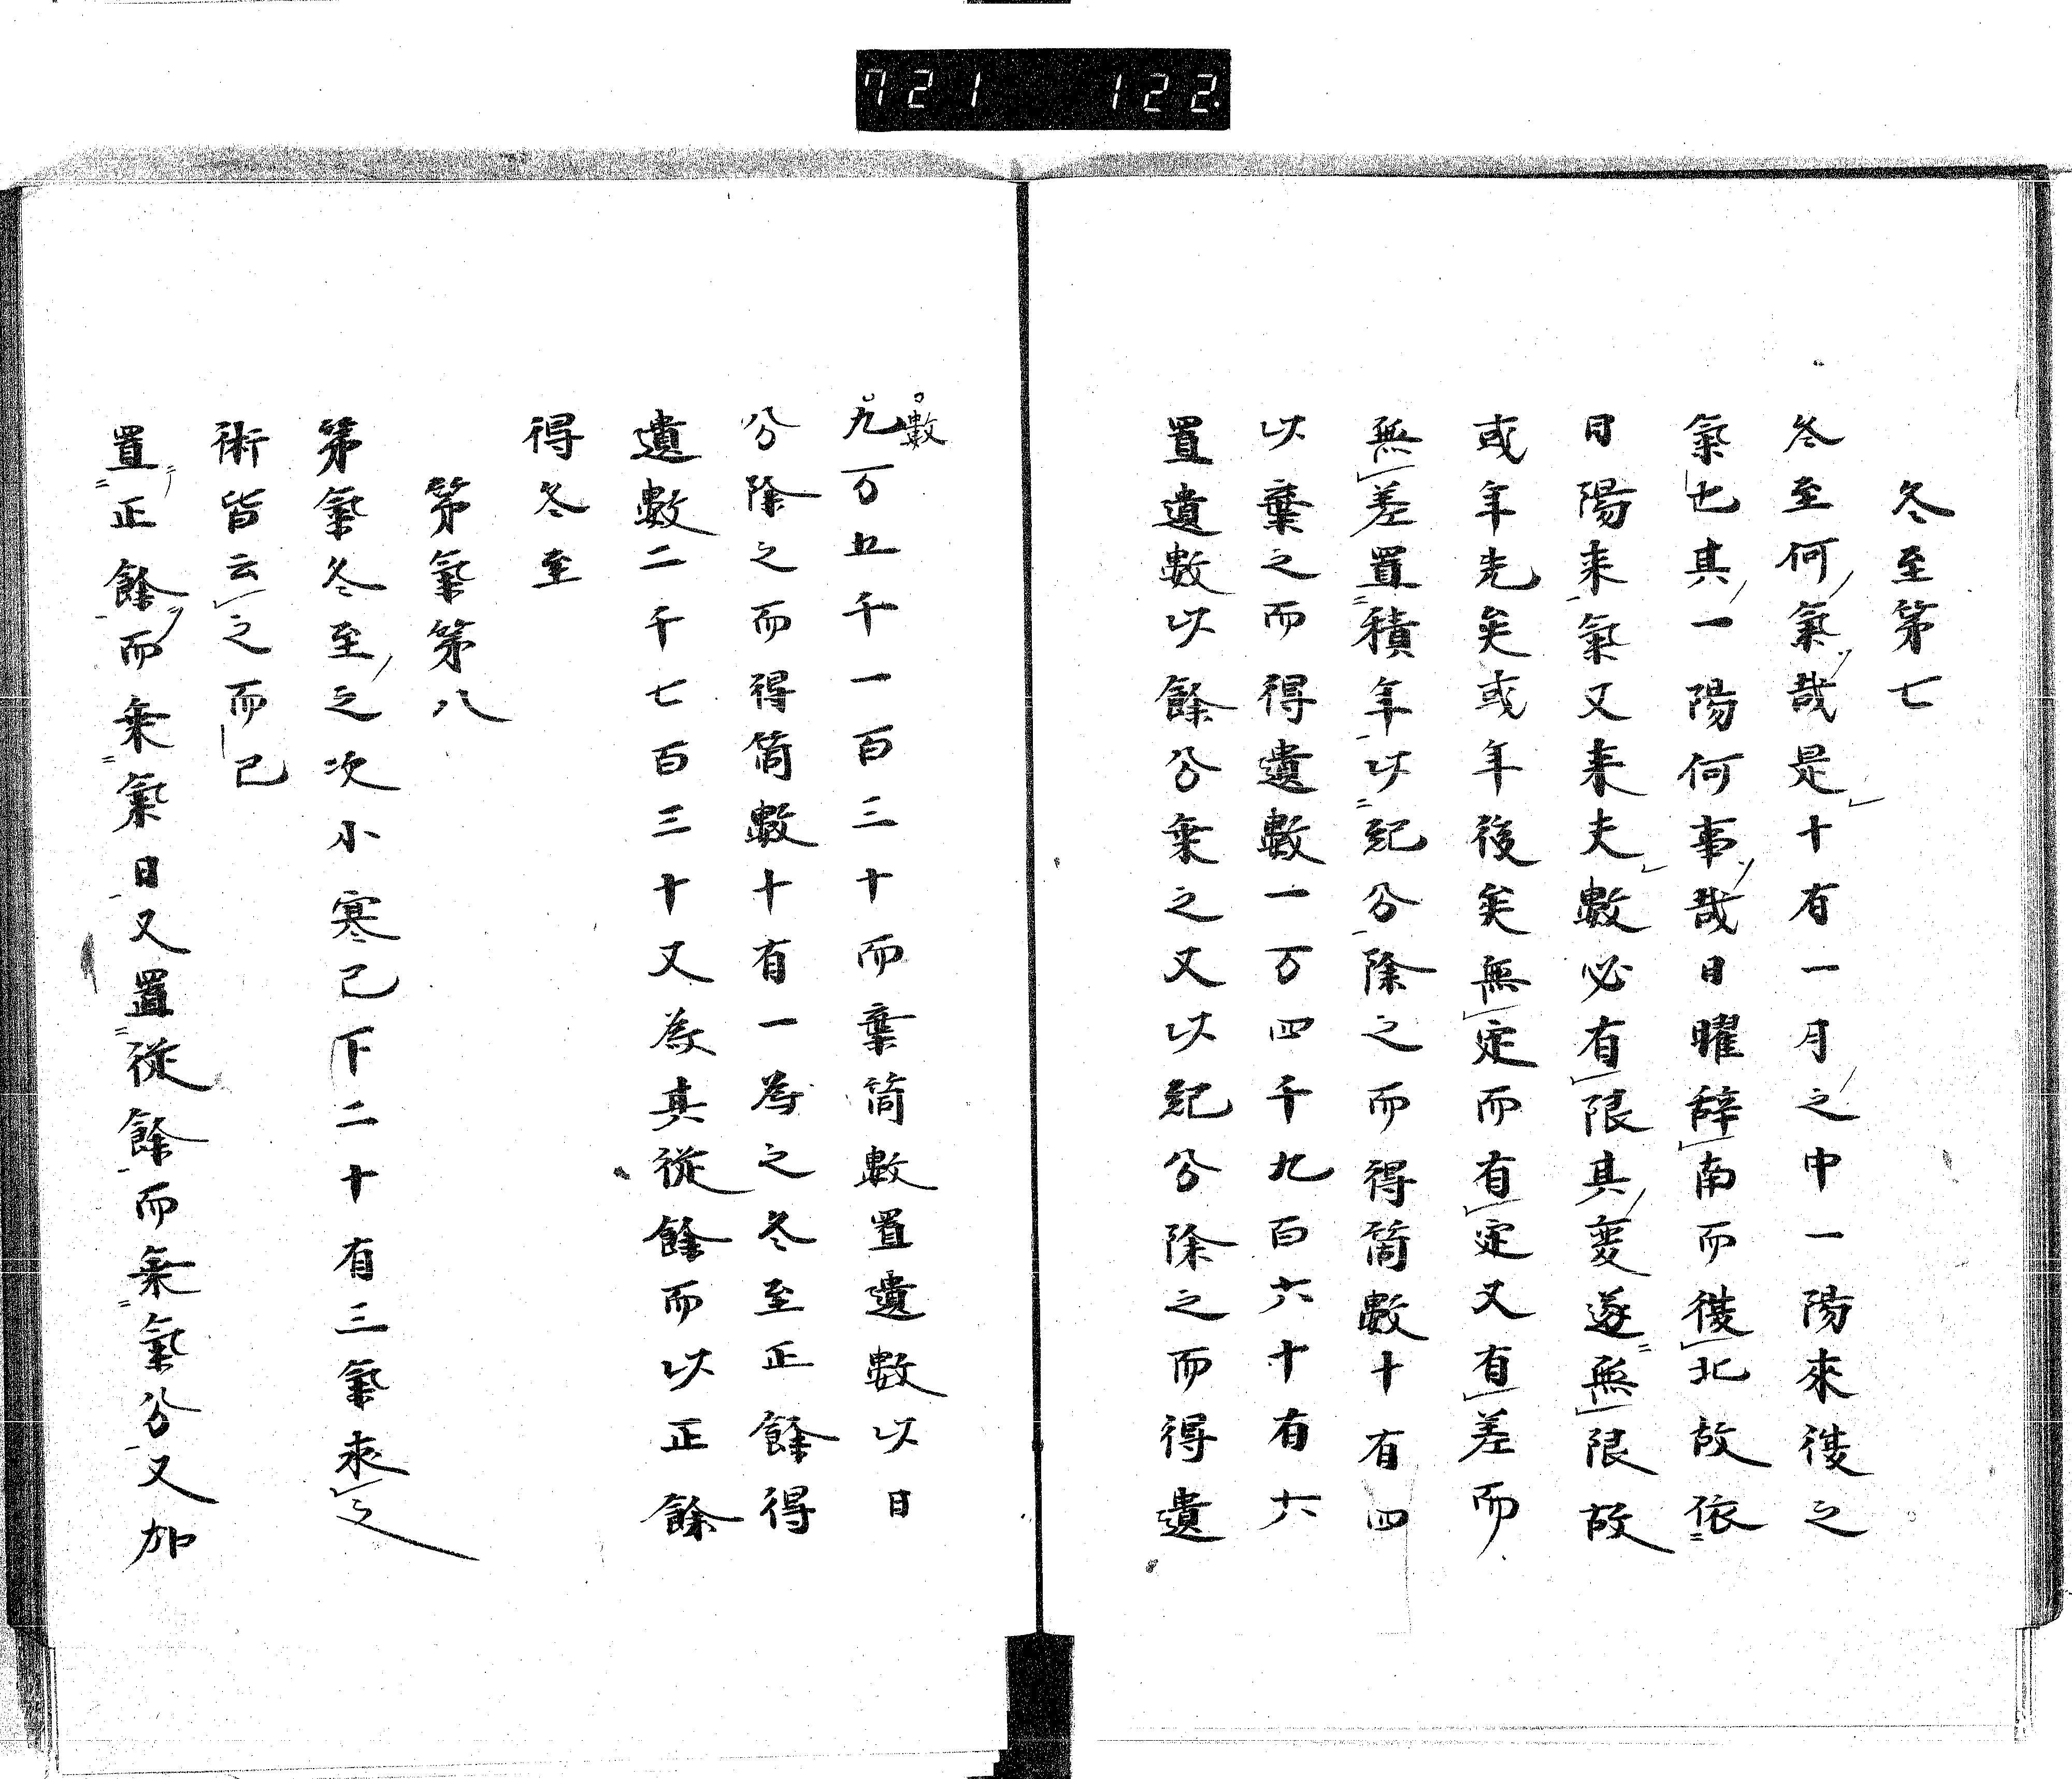 721 122.
冬至第七
冬至何氣哉是十有一月之中一陽來復之
氣也其一陽何事哉日曜辞南而復北故依
日陽来氣又来夫數必有限其変遂無限故
或年先矣或年後矣無定而有定又有差而
無差置積年以紀分除之而得箇數十有四
以棄之而得遺數一万四千九百六十有六
置遺數以餘分乗之又以紀分除之而得遺
數九万五千一百三十而棄箇數置遺數以日
分除之而得箇數十有一為之冬至正餘得
遺數二千七百三十又為其從餘而以正餘
得冬至
第氣第八
第氣冬至之次小寒已下二十有三氣求之
術皆云之而已
置正餘而乗氣日又置從餘而乗氣分又加